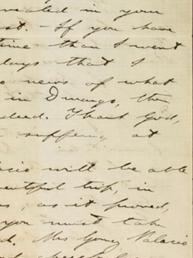 in your
. If you have
time than I went
days that I
news of what
in Durango, then
. Thank God,
suffering at
will be able
beautiful trip, in
, as it proved,
you must take
. Mrs Gomez Palacio